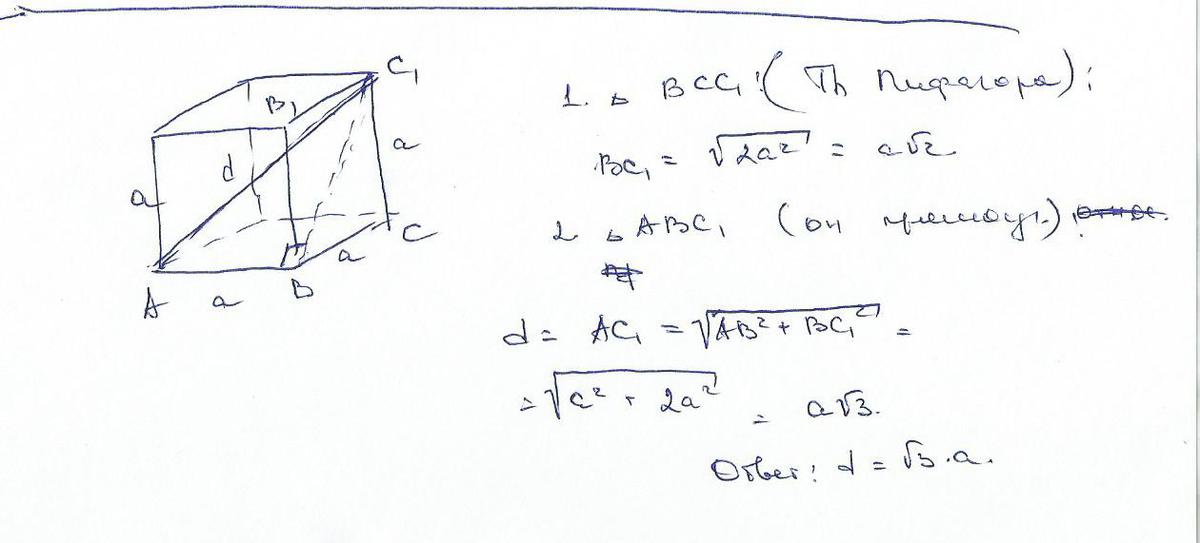 C₁
B₁
a
d
a
C
a
A
a
B
1. ▵ BCC₁: (Th Пифагора):
BC₁ = √2a² = a√2
2 ▵ ABC₁ (он прямоуг.)
d = AC₁ = √AB² + BC₁² =
= √a² + 2a² = a√3.
Ответ: d = √3·a.